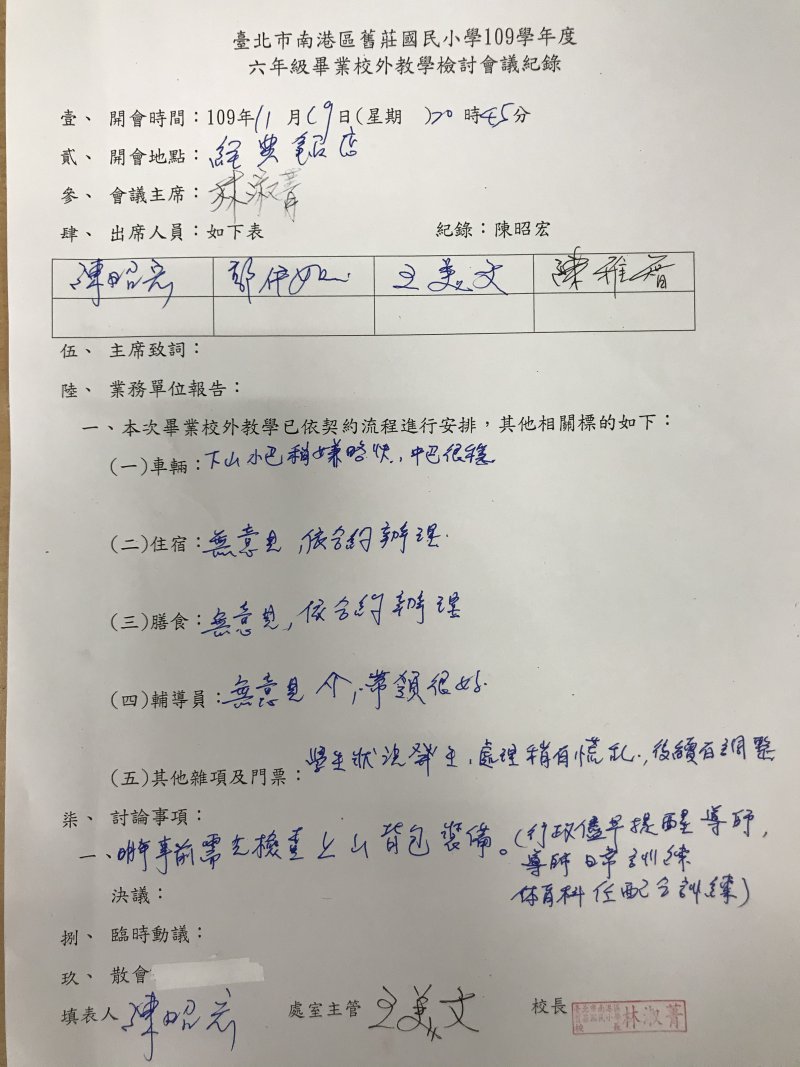 臺北市南港區舊莊國民小學109學年度
六年級畢業校外教學檢討會議紀錄
壹、 開會時間：109年11月19日(星期 )20時45分
貳、 開會地點：經典飯店
參、 會議主席：林淑菁
肆、 出席人員：如下表 紀錄：陳昭宏
陳昭宏 鄭伊如 王美文 陳雅君
伍、 主席致詞：
陸、 業務單位報告：
一、本次畢業校外教學已依契約流程進行安排，其他相關標的如下：
(一)車輛：下山小巴稍嫌略快，中巴很穩
(二)住宿：無意見，依合約辦理.
(三)膳食：無意見，依合約辦理
(四)輔導員：無意見，帶領很好.
(五)其他雜項及門票：學生狀況發生，處理稍有慌亂，後續有調整
柒、 討論事項：
一、明年事前需先檢查上山背包裝備。(行政儘早提醒導師，
導師日常訓練
體育科任配合訓練)
決議：
捌、 臨時動議：
玖、 散會
填表人 陳昭宏 處室主管 王美文 校長 林淑菁